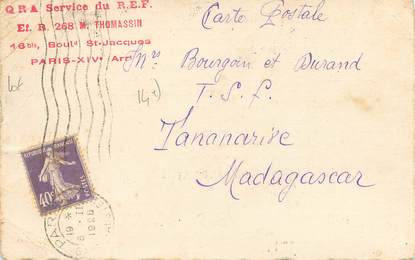 QRA Service du R.E.F.
Ef. R. 268 M. THOMASSIN
16bis, Boulᵈ St-Jacques
PARIS-XIVᵉ Arr
Carte Postale
Mrs Bourgoin et Durand
T.S.F.
Tananarive
Madagascar
lot
REPUBLIQUE FRANÇAISE
40c
POSTES
PARIS
1926